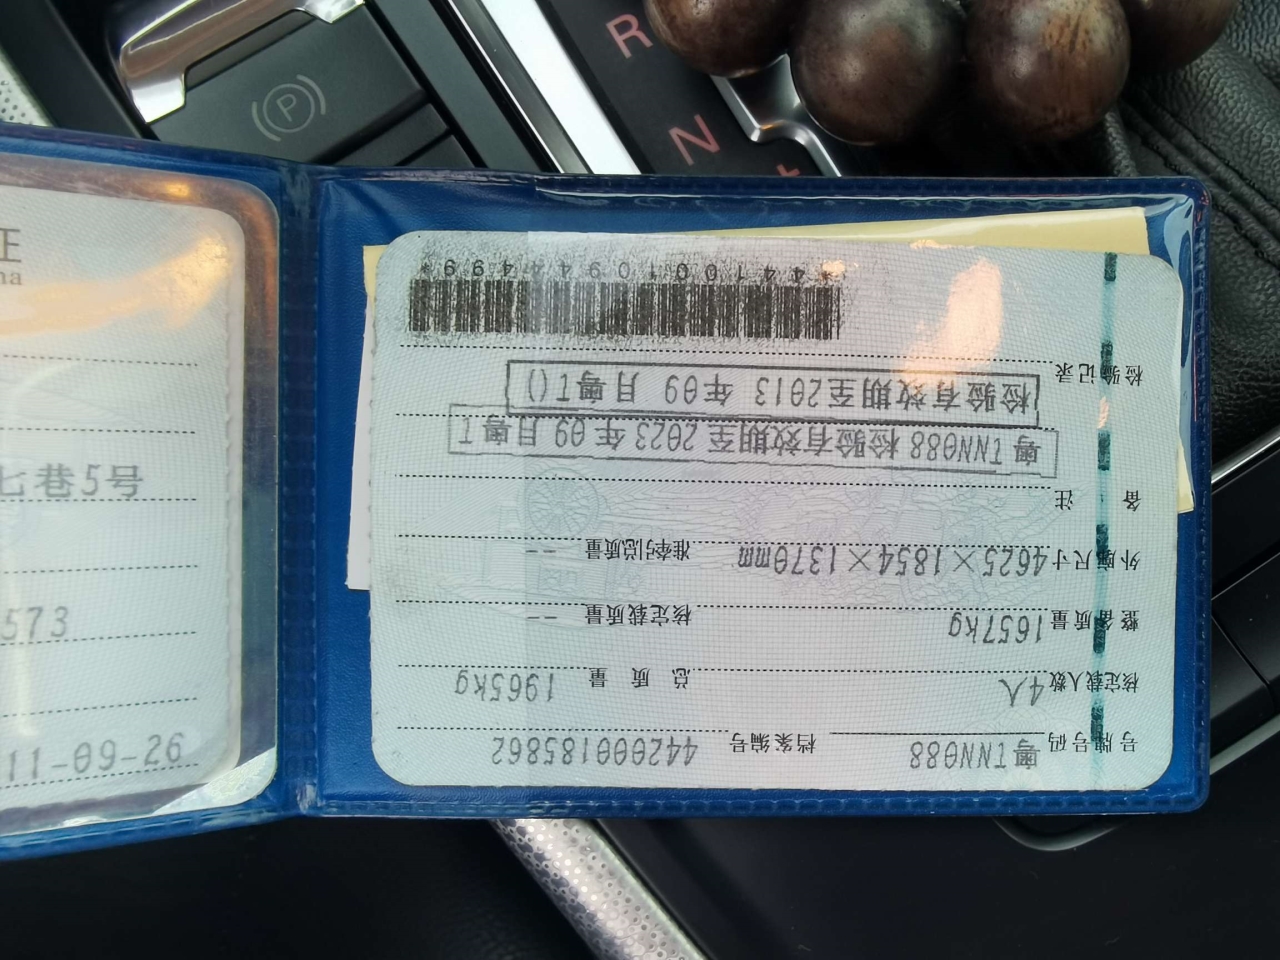 R
N
P
na
七巷5号
573
11-09-26
号牌号码 粤TNN088 档案编号 442000185862
核定载人数 4人 总质量 1965kg
整备质量 1657kg 核定载质量 --
外廓尺寸 4625×1854×1370mm 准牵引总质量 --
备注
粤TNN088 检验有效期至2023年09月粤T
检验记录 检验有效期至2013 年09 月粤T()
*4410010944499*